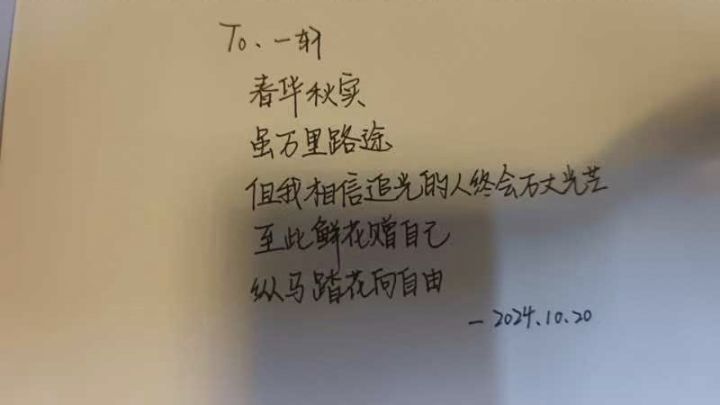 To、一轩
春华秋实
虽万里路途
但我相信追光的人终会万丈光芒
至此鲜花赠自己
纵马踏花向自由
-2024.10.20